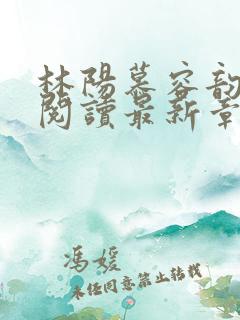 林陽慕容韵
閱讀最新章
馮媛
未经同意禁止转载